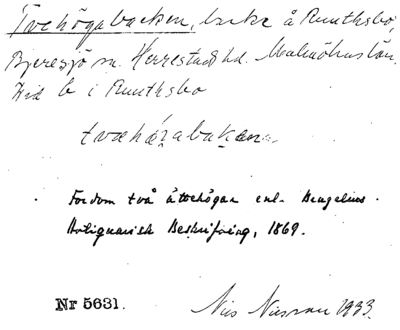 Tvehögabacken, backe å Ruuthsbo,
Bjeresjö sn. Herrestads hd. Malmöhus län.
Hid b i Ruuthsbo
tvæhözabakan.
Fordom två ättehögar enl. Bruzelius
Antiquarisk Beskrifning, 1869.
Nr 5631. Nils Nilsson 1933.